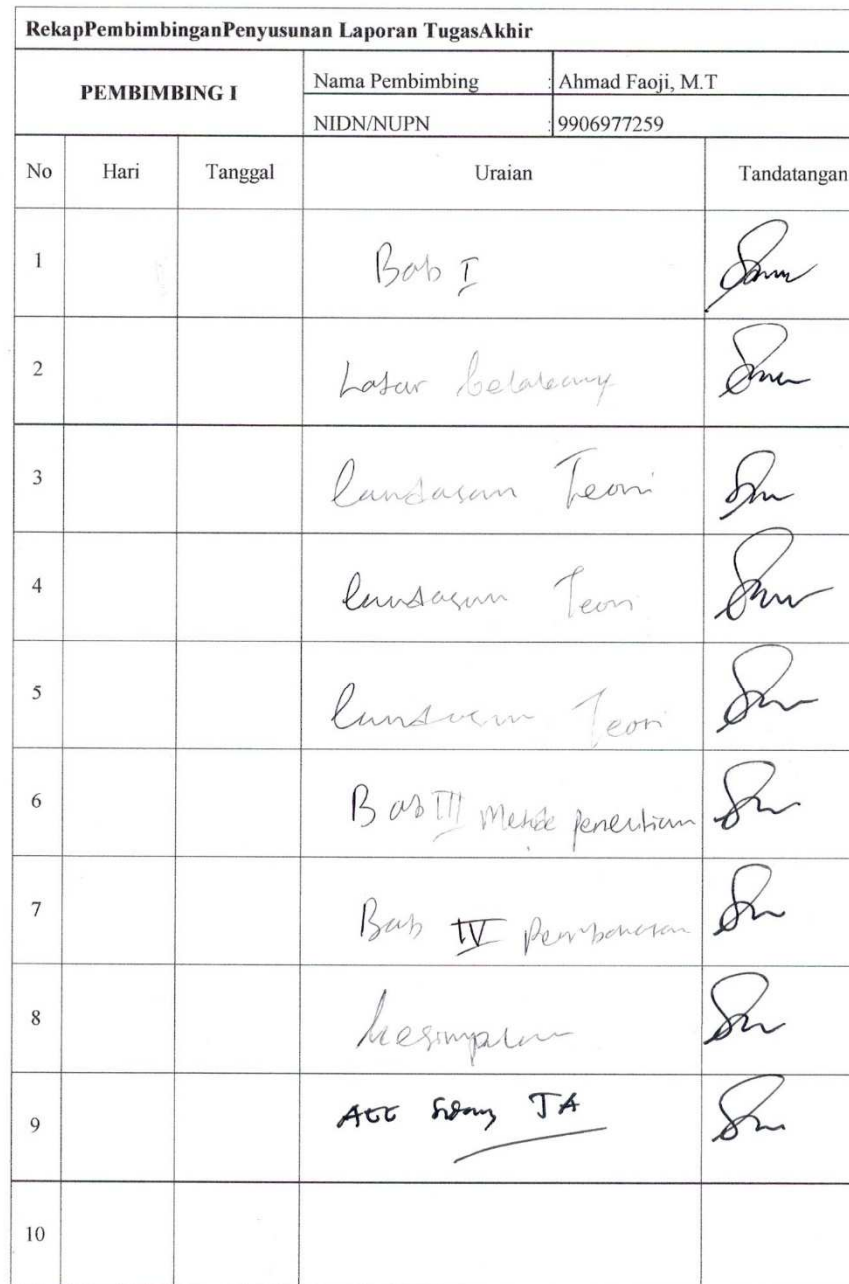 RekapPembimbinganPenyusunan Laporan TugasAkhir
PEMBIMBING I
Nama Pembimbing : Ahmad Faoji, M.T
NIDN/NUPN : 9906977259
No Hari Tanggal Uraian Tandatangan
1 Bab I
2 Latar belakang
3 landasan Teori
4 landasan Teori
5 landasan Teori
6 Bab III Metode penelitian
7 Bab IV pembahasan
8 kesimpulan
9 ACC Sidang TA
10